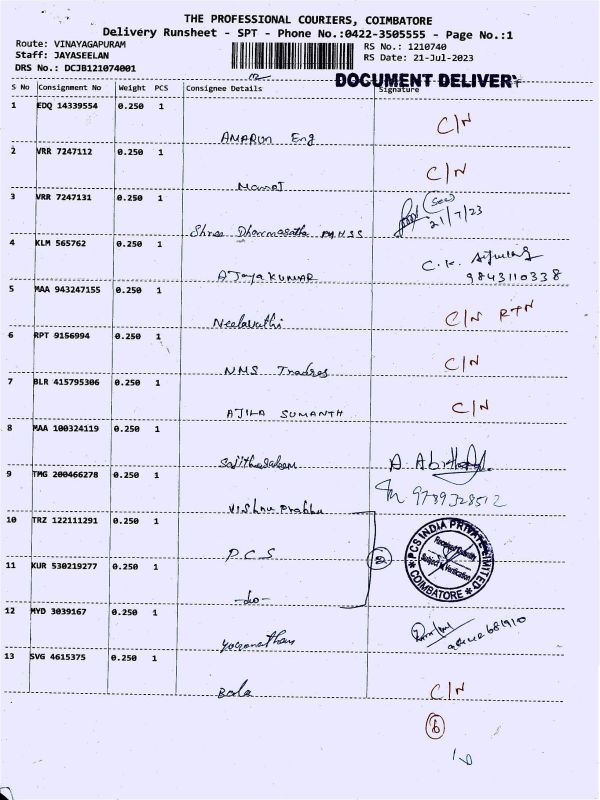 THE PROFESSIONAL COURIERS, COIMBATORE
Delivery Runsheet - SPT - Phone No.:0422-3505555 - Page No.:1
Route: VINAYAGAPURAM
RS No.: 1210740
Staff: JAYASEELAN
RS Date: 21-Jul-2023
DRS No.: DCJB121074001
DOCUMENT DELIVERY
S No Consignment No Weight PCS Consignee Details Signature
1 EDQ 14339554 0.250 1
C/N
Eng
2 VRR 7247112 0.250 1
C/N
3 VRR 7247131 0.250 1
21/7/23
Shree Dharmasastha
4 KLM 565762 0.250 1
C.K.
9843110338
AJaya KUMAR
5 MAA 943247155 0.250 1
C/N RTN
Neelavathi
6 RPT 9156994 0.250 1
C/N
NMS Tradres
7 BLR 415795306 0.250 1
C/N
AJILA SUMANTH
8 MAA 100324119 0.250 1
9 TMG 200466278 0.250 1
9789328512
Vishnu Prabhu
10 TRZ 122111291 0.250 1
P.C.S
2
PCS INDIA PRIVATE LIMITED
Subject to Verification
COIMBATORE
11 KUR 530219277 0.250 1
-do-
12 MYD 3039167 0.250 1
681910
13 SVG 4615375 0.250 1
C/N
Bala
6